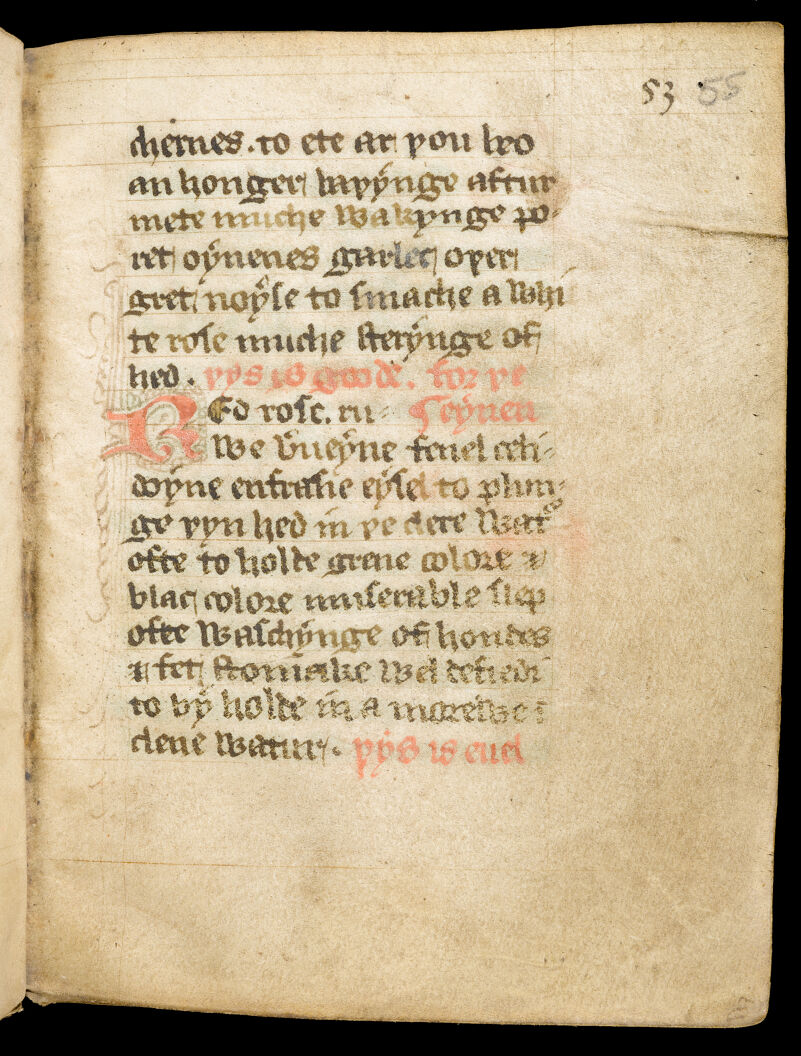 53 55
chernes . to ete ar þou beo
an honger, baþẏnge aftur
mete muche wakynge po-
ret, oẏnenes garlec, oþer
gret, noẏse to smache a whi
te rose muche sterẏnge of
hed . þẏs is goode . for þe
Red rose . ru- ¶ eẏnen
we v̓ueẏne fenel celi-
doẏne enfrasie eẏsel to plun-
ge þyn hed in þe clere Wat͛
ofte to holde grene colore ⁊
blac, colore miserable slep
ofte waschẏnge of hondes
⁊ fet, stomake wel defiedi
to bẏ holde in a
clene watur . þẏs is euel